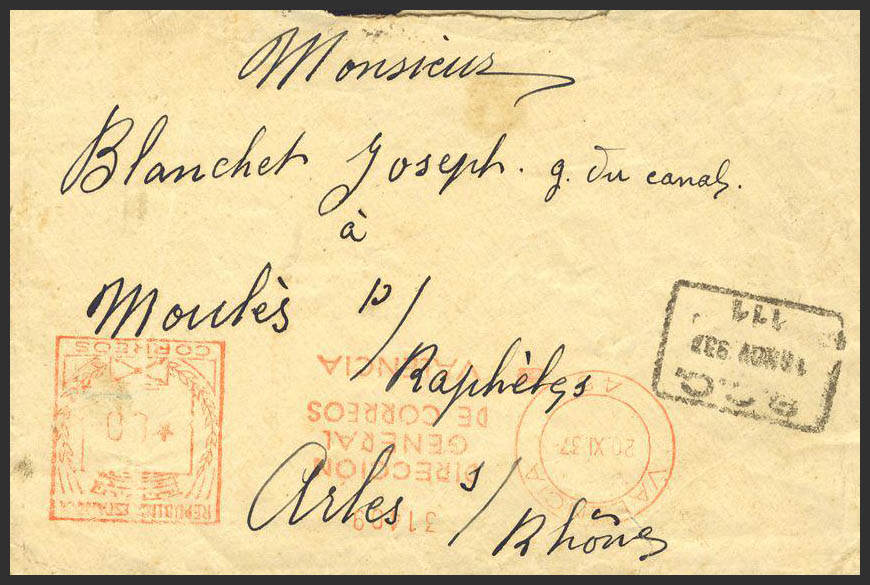 Monsieur
Blanchet Joseph. g. du canal.
à
Moulès p/
Raphèles
Arles s/
Rhônes
CORREOS
REPUBLICA ESPAÑOLA
DIRECCIÓN
GENERAL
DE CORREOS
VALENCIA
20 XI 37
18 NOV 937
111